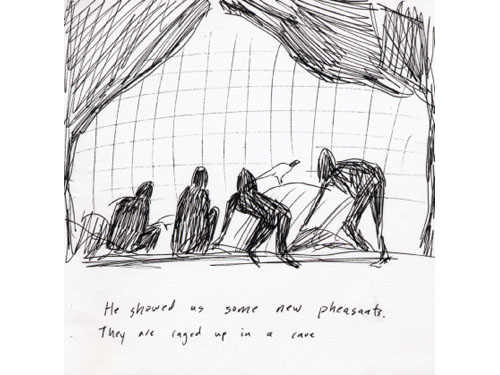 He showed us some new pheasants.
They are caged up in a cave